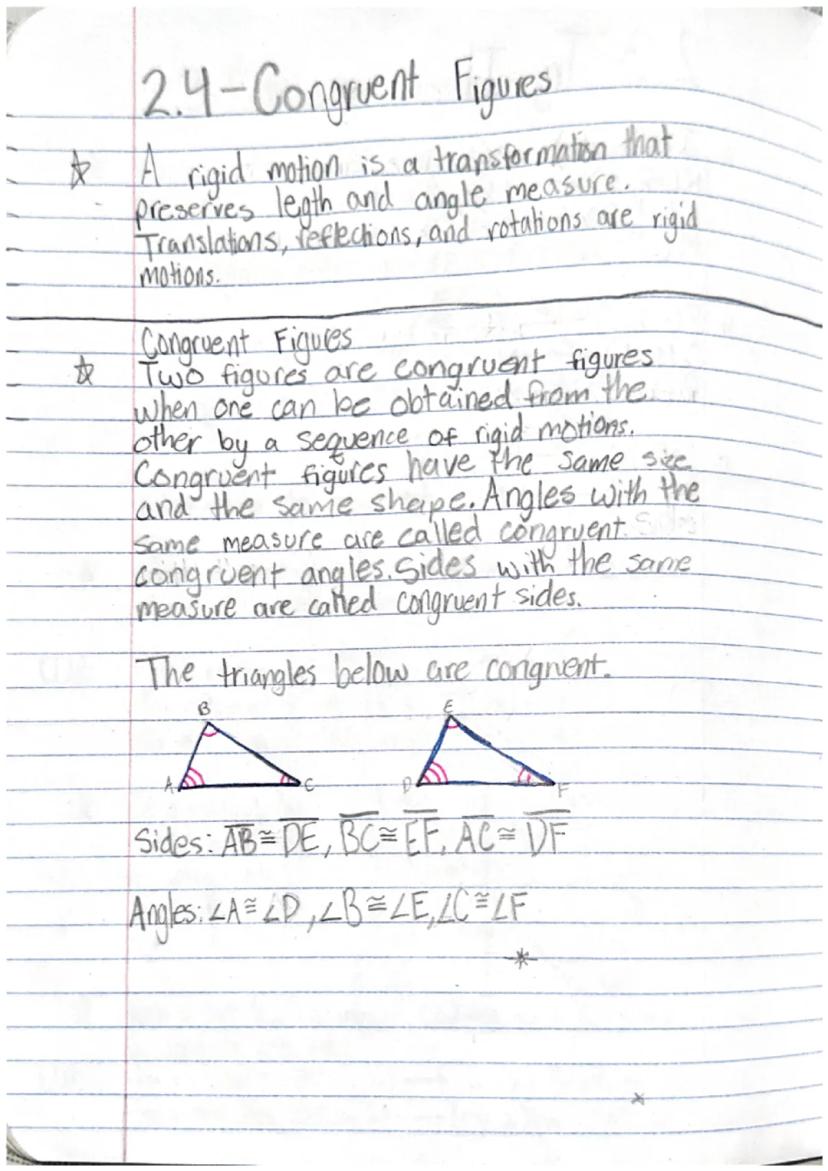 2.4-Congruent Figures
☆ A rigid motion is a transformation that
preserves legth and angle measure.
Translations, reflections, and rotations are rigid
motions.
Congruent Figures
☆ Two figures are congruent figures
when one can be obtained from the
other by a sequence of rigid motions.
Congruent figures have the same size
and the same shape. Angles with the
same measure are called congruent.
congruent angles. Sides with the same
measure are called congruent sides.
The triangles below are congruent.
B E
A C D F
Sides: A̅B̅≅D̅E̅, B̅C̅≅E̅F̅, A̅C̅≅D̅F̅
Angles: ∠A≅∠D, ∠B≅∠E, ∠C≅∠F